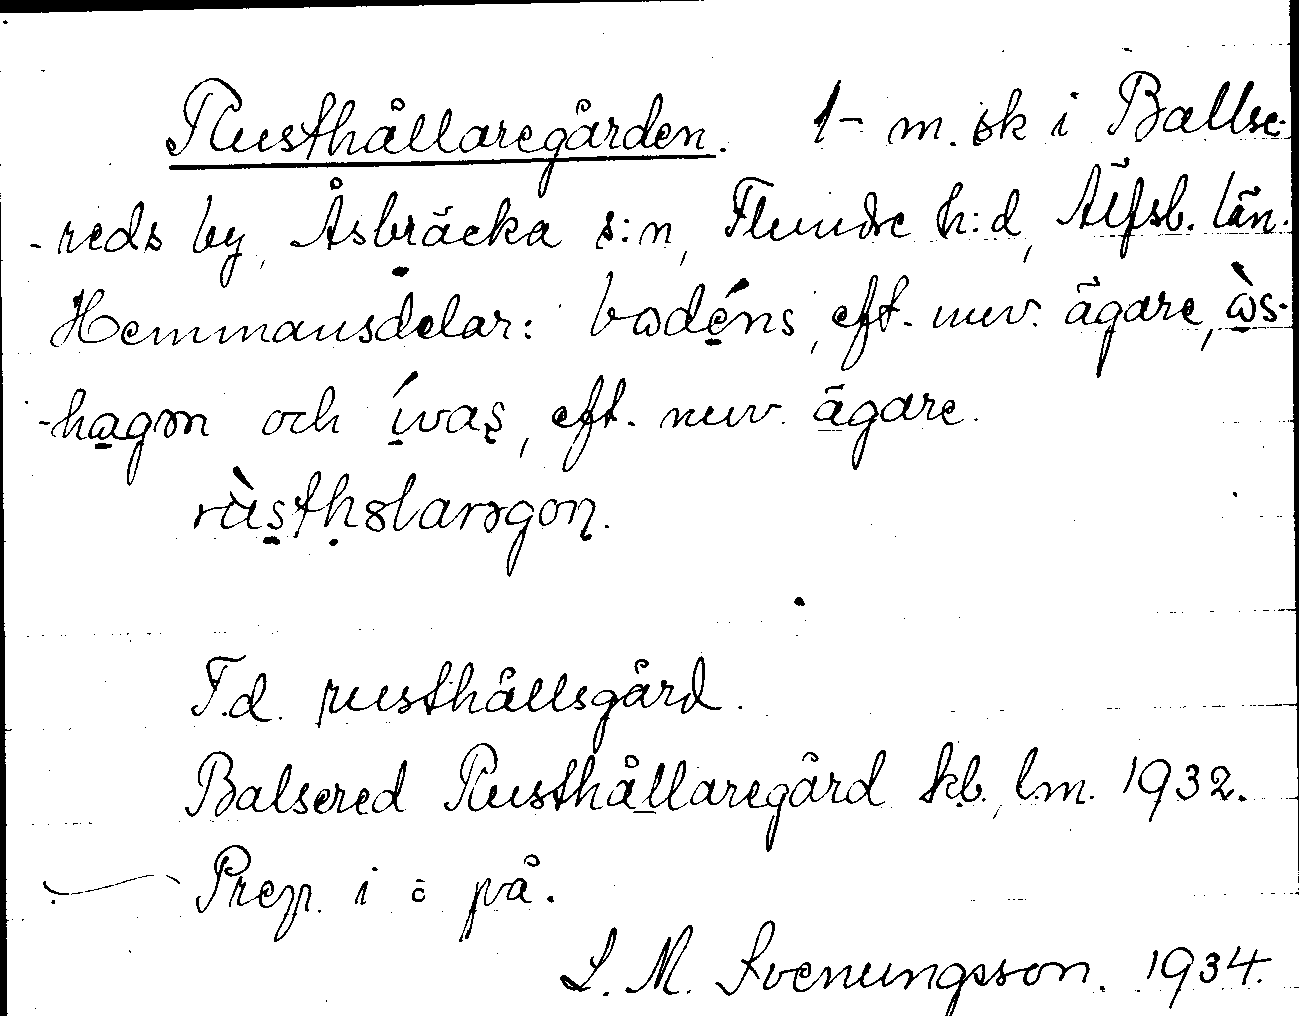 Rusthållaregården. 1- m. sk i Ballse-
-reds by, Åsbräcka s:n, Flundre h:d, Älfsb. län.
Hemmansdelar: bωdéns, eft. nuv. ägare, ὼs-
-hagən och ívaș, eft. nuv. ägare.
rùsthɵlarəgoɳ.
F.d. rusthållsgård.
Balsered Rusthållaregård kb., lm. 1932.
Prep. i o på.
L. M. Svenungsson. 1934.